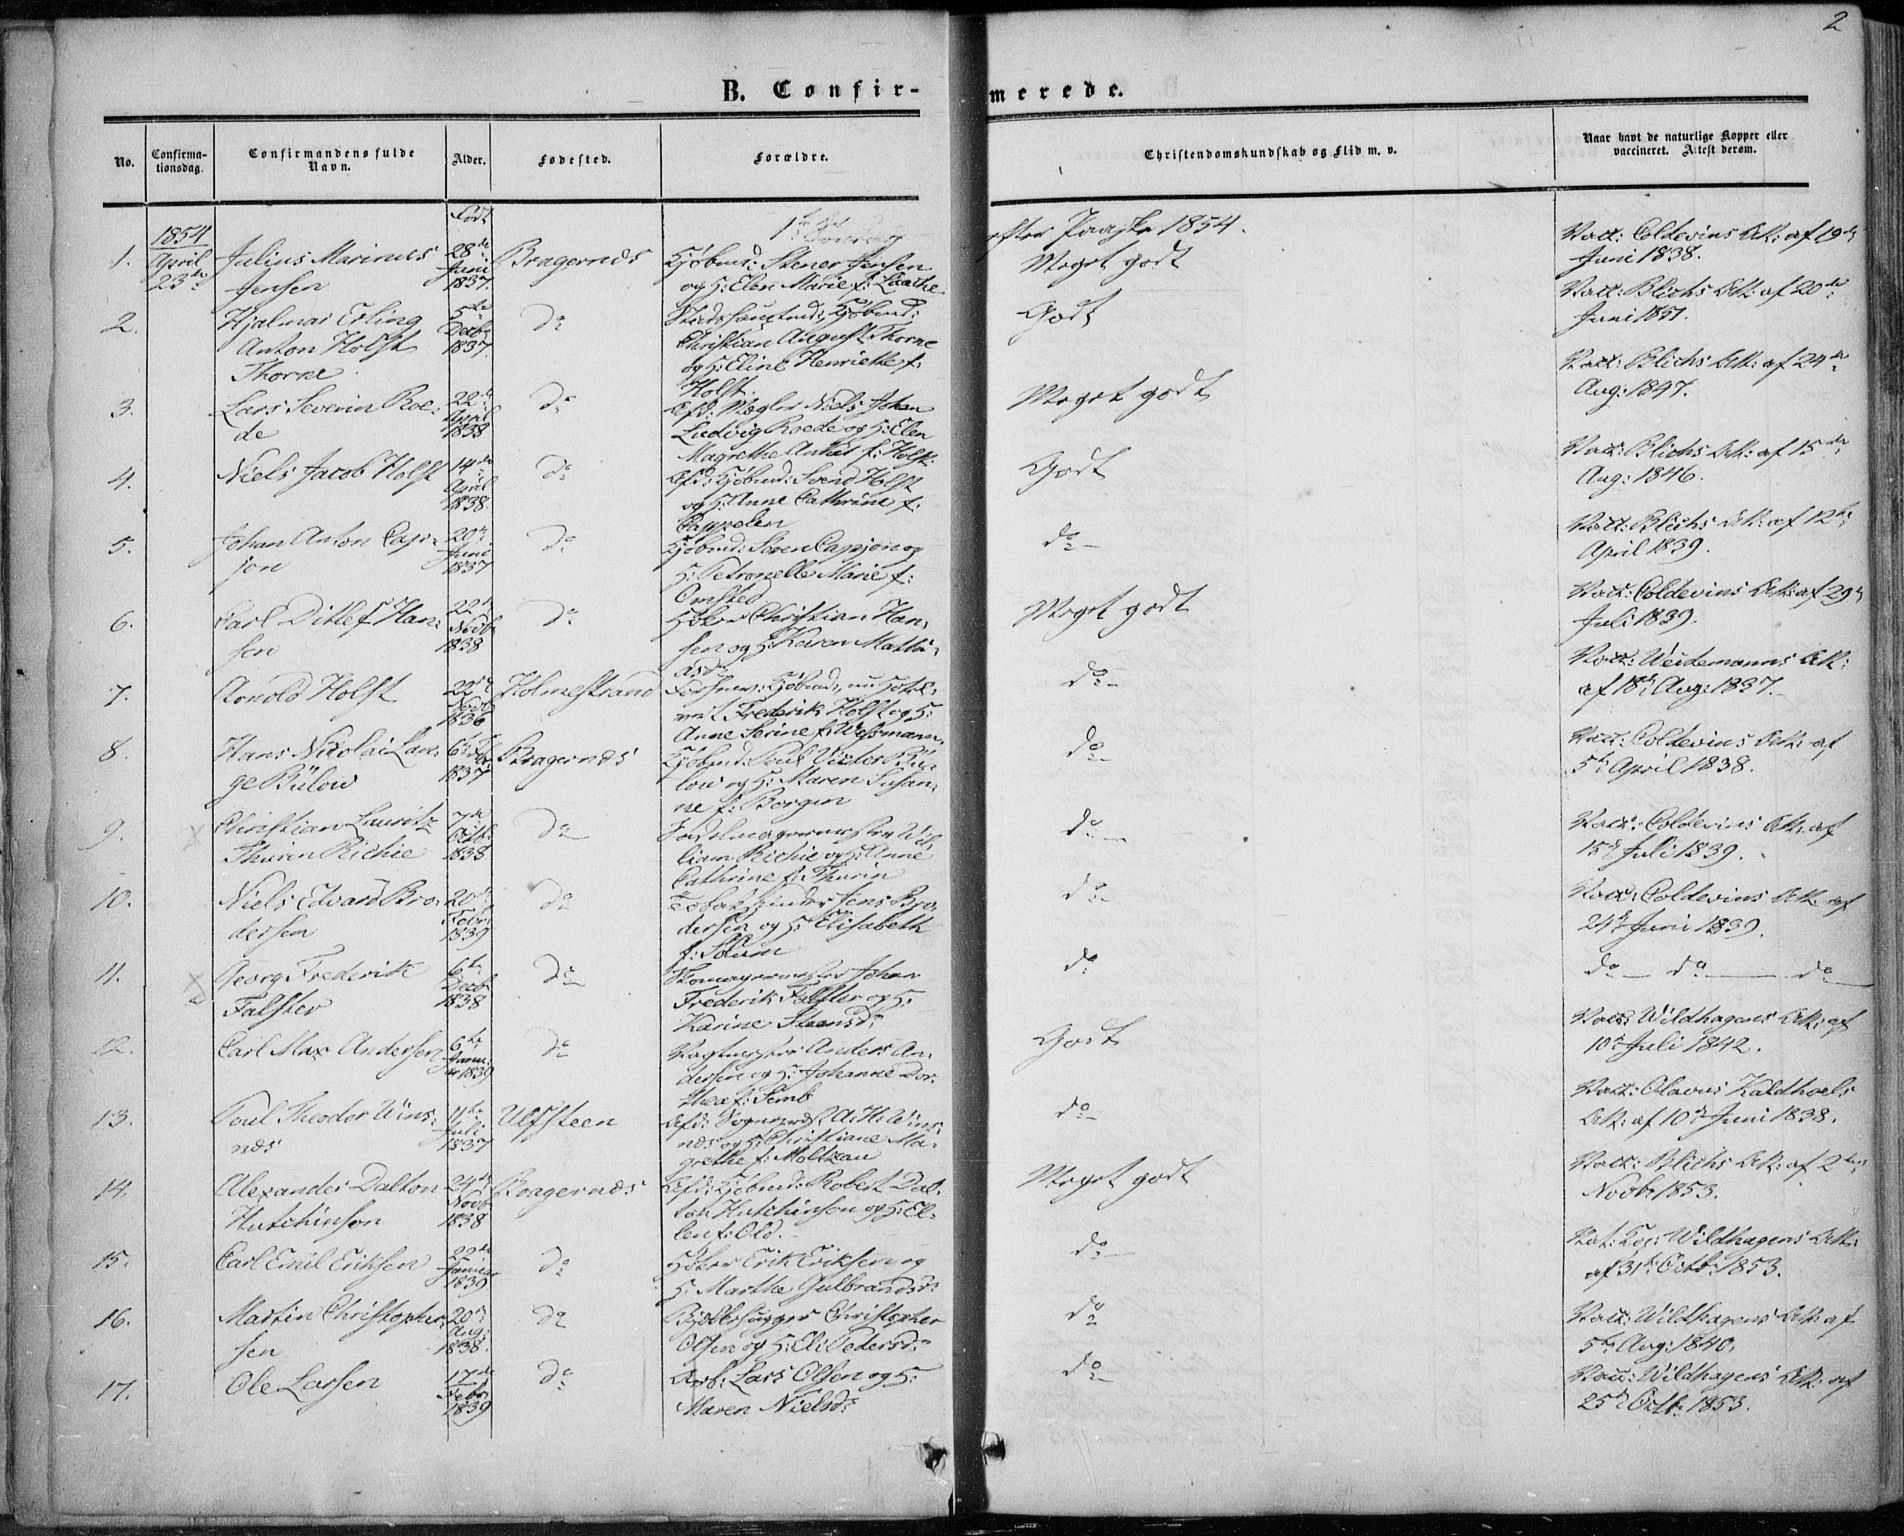 2
B. Confir-
merede.
No.
Confirma-
tionsdag.
Confirmandens fulde
Navn.
Alder.
Fødested.
Forældre.
Christendomskundskab og Flid m. v.
Naar havt de naturlige Kopper eller
vaccineret. Attest derom.
Født
1854
April
23de
1ste Søndag
efter Paaske 1854.
1.
Julius Marinus
Jensen
28de
Juni
1837.
Bragernæs
Kjøbmd: Stener Jensen
og H: Elen Marie f: Laache
Meget godt
Vacc: Coldevins Att: af 19de
Juni 1838.
2.
Hjalmar Erling
Anton Holst
Thorne
5te
Decbr
1837.
do
Stadshauptmd: Kjøbmd:
Christian August Thorne
og H: Eline Henriette f:
Holst.
Godt
Vacc: Blichs Att: af 20de
Juni 1851.
3.
Lars Severin Roe-
de
22de
April
1838
do
Afd: Mægler Niels Johan
Ludvig Roede og H: Elen
Magrethe Anker f: Holst.
Meget godt
Vacc: Blichs Att: af 24de
Aug: 1847.
4.
Niels Jacob Holst
14de
April
1838.
do
Afd: Kjøbmd: Svend Holst
og H: Anne Cathrine f:
Cappelen
Godt
Vacc: Blichs Att: af 15de
Aug: 1846.
5.
Johan Anton Cap-
jon
20de
Juni
1837
do
Kjøbmd: Søren Capjon og
H: Petronelle Marie f:
Omsted
do
Vacc: Blichs Att: af 12te
April 1839.
6.
Carl Ditlef Han-
sen
22de
Novb
1838
do
Høker Christian Han-
sen og H: Karen Mathi-
asd:
Meget godt
Vacc: Coldevins Att: af 29de
Juli 1839.
7.
Arnold Holst
22de
Novb
1836
Holmestrand
Forhenv: Kjøbmd:, nu
Frederik Holst og H:
Anne Serine f: Wessmann.
do
Vacc: Weidemanns Att:
af 18de Aug: 1837.
8.
Hans Nicolai Lan-
ge Bülow
6te
1837
Bragernæs
Kjøbmd: Poul Vieter Bü-
low og H: Maren Susan-
ne f: Borgen
do
Vacc: Coldevins Att: af
5te April 1838.
9.
Christian Lauritz
Thurin Richie
7de
Octb.
1838
do
Sadelmagermester Wil-
liam Richie og H: Anne
Cathrine f: Thurin
do
Vacc: Coldevins Att: af
15de Juli 1839.
10.
Niels Edvard Bro-
dersen
20de
Febr
1839
do
Jens Bro-
dersen og H: Elisabeth
f: Solum
do
Vacc: Coldevins Att: af
24de Juni 1839.
11.
Georg Frederik
Falster
6te
Decb
1838
do
Skomagermester Johan
Frederik Falster og H:
Karine Steensd:
do
do do do
12.
Carl Max Andersen
6te
Janu-
ar 1839
do
Vagtmester Anders An-
dersen og H: Johanne Dor-
thea f: Semb
Godt
Vacc: Wildhagens Att: af
10de Juli 1842.
13.
Poul Theodor Wins-
næs
11te
Juli
1837
Ulfsteen
Afd: Sognepræst A: H: Wins-
næs og H: Christiane Ma-
grethe f: Moltzau
do
Vacc: Olavus Kaldhoels
Att: af 10de Juni 1838.
14.
Alexander Dalton
Hutchinson
24de
Novb
1838
Bragernæs
Afd: Kjøbmd: Robert Dal-
ton Hutchinson og H: El-
len f: Old.
Meget godt
Vacc: Blichs Att: af 2den
Novb: 1853.
15.
Carl Emil Eriksen
22de
Januar
1839
do
Høker Erik Eriksen og
H: Marthe Gulbrandsd:
do
Nat: Kop: Wildhagens Att:
af 31te Octb: 1853.
16.
Martin Christopher-
sen
20de
Aug:
1838.
do
Christopher
Olsen og H: Eli Pedersd:
do
Vacc: Wildhagens Att: af
5te Aug: 1840.
17.
Ole Larsen
17de
Febr
1839
do
Arb: Lars Olsen og H:
Maren Nielsd:
do
Vacc: Wildhagens Att: af
25de Octb: 1853.